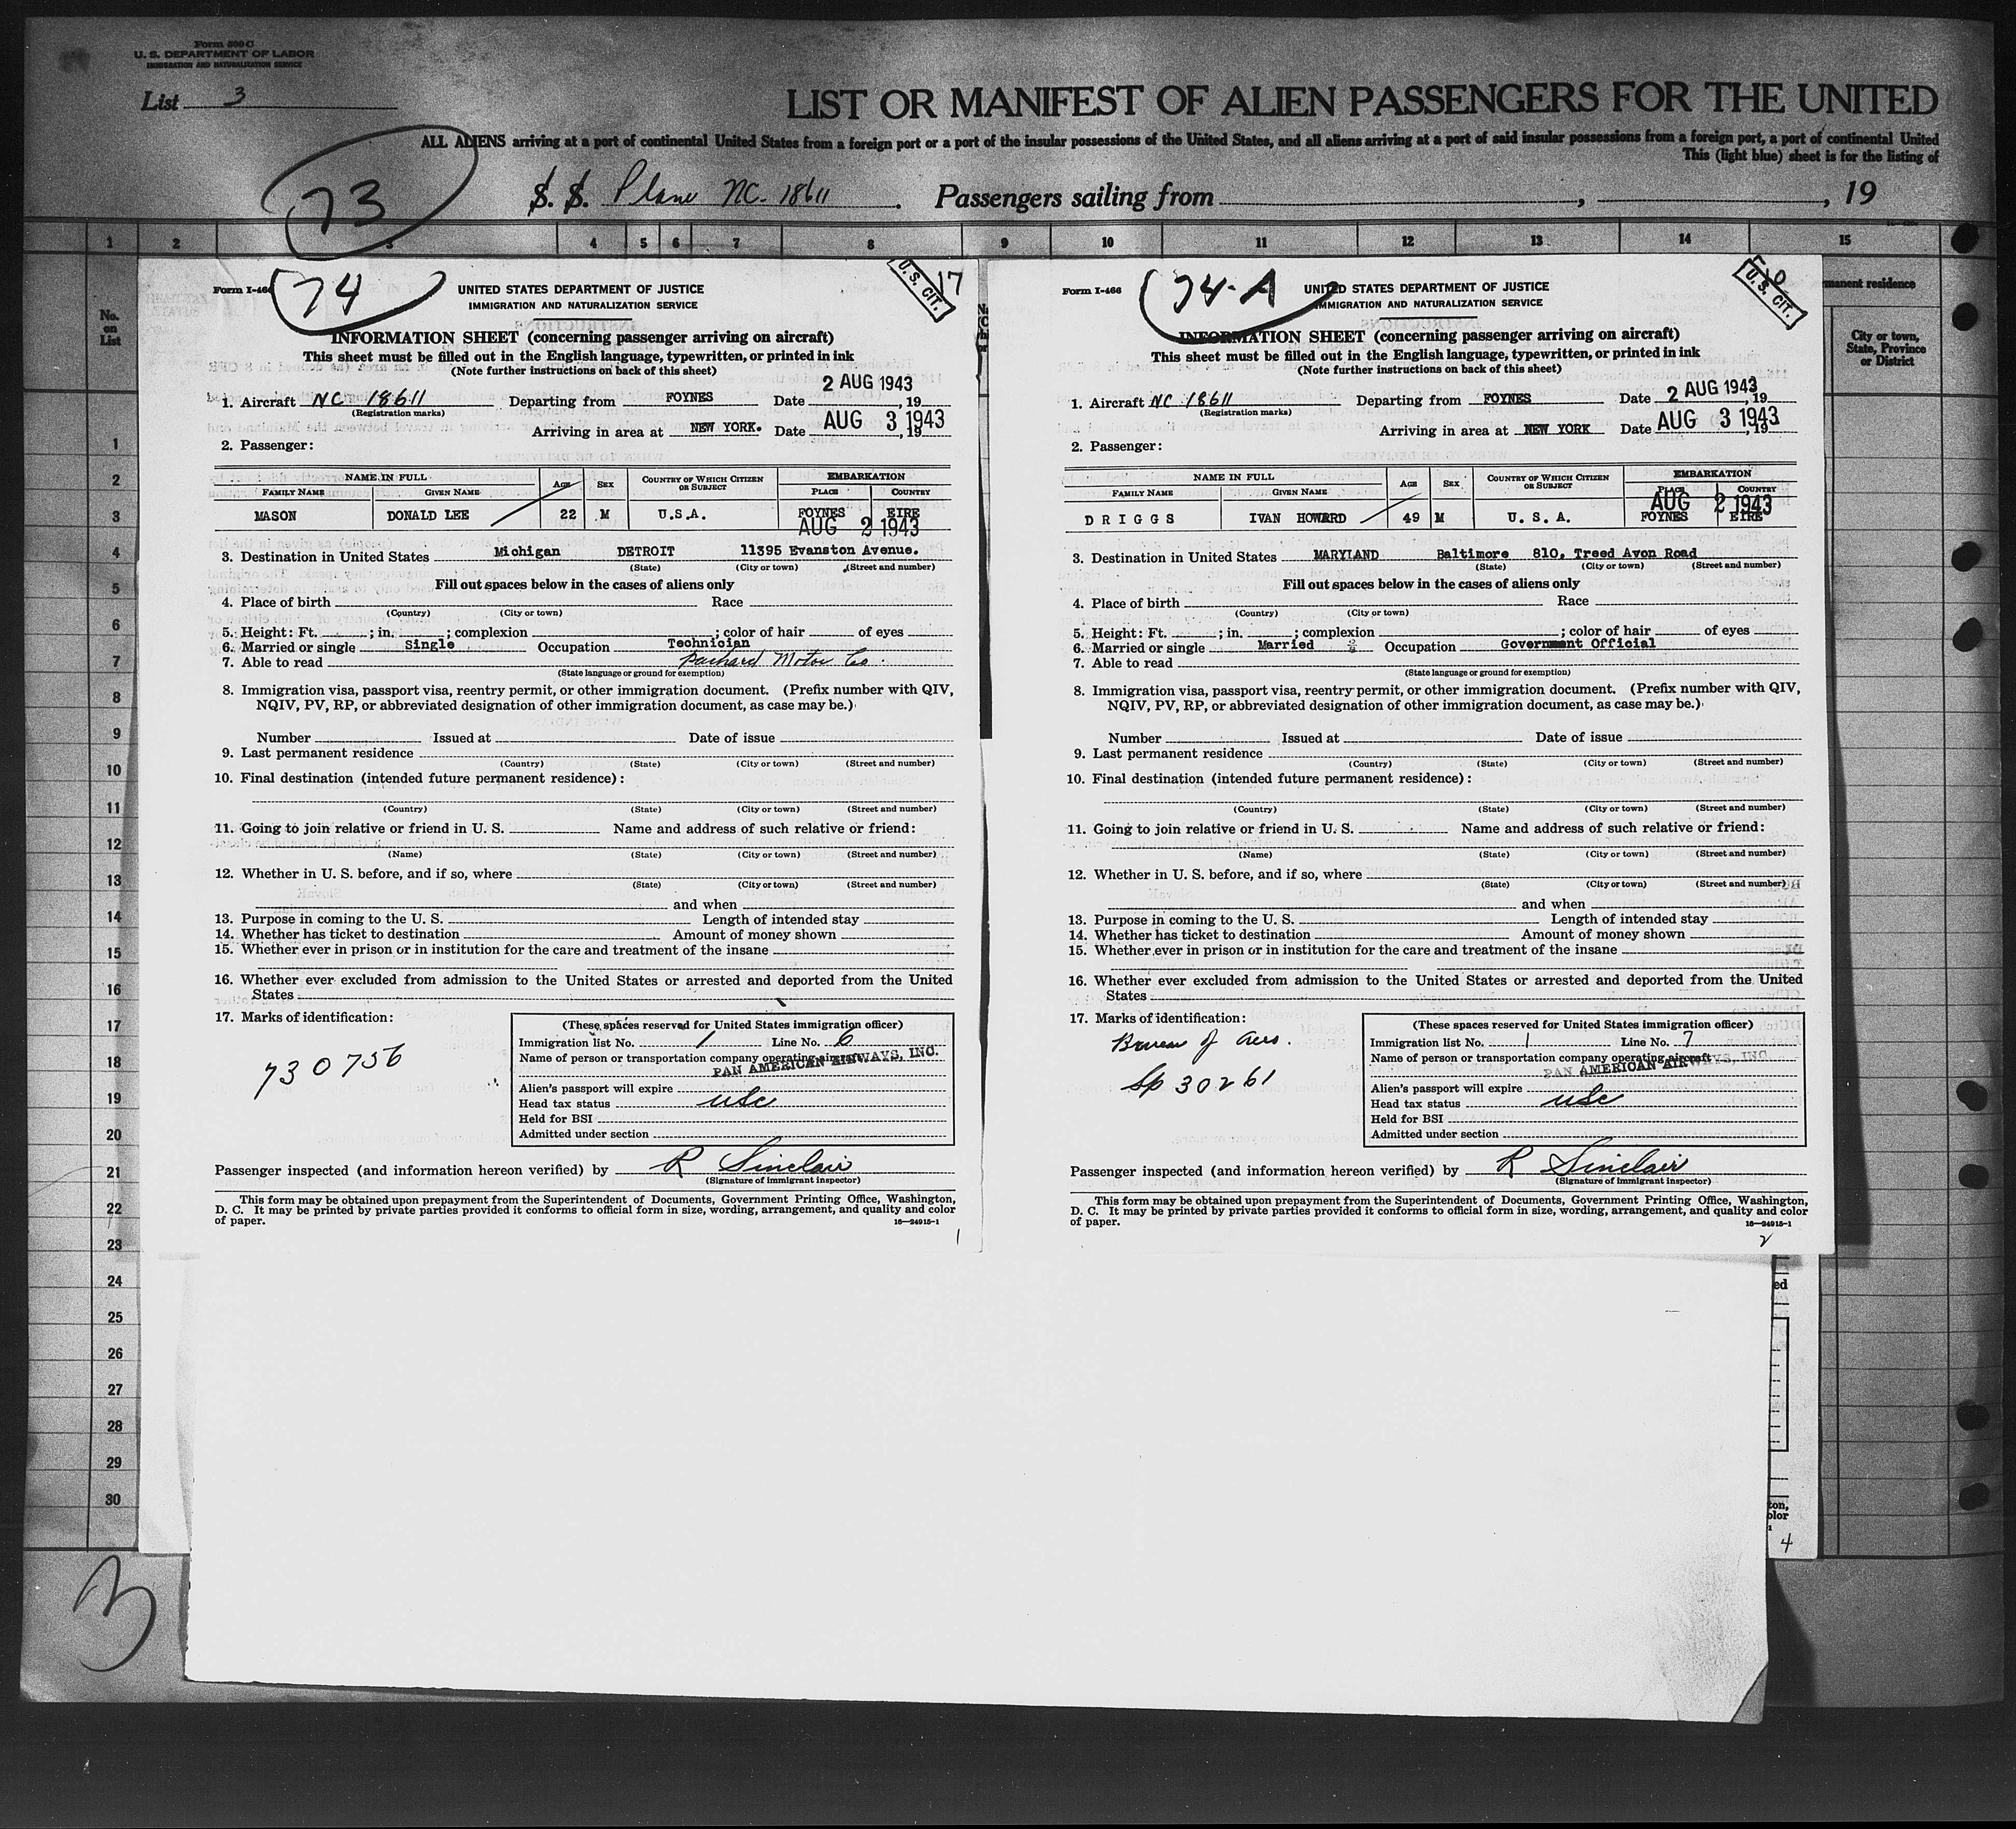 Form 500 C
U. S. DEPARTMENT OF LABOR
IMMIGRATION AND NATURALIZATION SERVICE
List 3
LIST OR MANIFEST OF ALIEN PASSENGERS FOR THE UNITED
ALL ALIENS arriving at a port of continental United States from a foreign port or a port of the insular possessions of the United States, and all aliens arriving at a port of said insular possessions from a foreign port, a port of continental United
This (light blue) sheet is for the listing of
73
S. S. Plane NC. 18611. Passengers sailing from , , 19
1 2 3 4 5 6 7 8 9 10 11 12 13 14 15
No. on List
manent residence
City or town, State, Province or District
1
2
3
4
5
6
7
8
9
10
11
12
13
14
15
16
17
18
19
20
21
22
23
24
25
26
27
28
29
30
3
Form I-466
74
U. S. CIT.
17
UNITED STATES DEPARTMENT OF JUSTICE
IMMIGRATION AND NATURALIZATION SERVICE
INFORMATION SHEET (concerning passenger arriving on aircraft)
This sheet must be filled out in the English language, typewritten, or printed in ink
(Note further instructions on back of this sheet)
2 AUG 1943
1. Aircraft NC 18611 Departing from FOYNES Date , 19
(Registration marks)
AUG 3 1943
Arriving in area at NEW YORK. Date , 19
2. Passenger:
NAME IN FULL Age Sex Country of Which Citizen or Subject EMBARKATION
Family Name Given Name Place Country
MASON DONALD LEE 22 M U.S.A. FOYNES EIRE
AUG 2 1943
3. Destination in United States Michigan DETROIT 11395 Evanston Avenue.
(State) (City or town) (Street and number)
Fill out spaces below in the cases of aliens only
4. Place of birth Race
(Country) (City or town)
5. Height: Ft. ; in. ; complexion ; color of hair of eyes
6. Married or single Single Occupation Technician
7. Able to read Packard Motor Co.
(State language or ground for exemption)
8. Immigration visa, passport visa, reentry permit, or other immigration document. (Prefix number with QIV,
NQIV, PV, RP, or abbreviated designation of other immigration document, as case may be.)
Number Issued at Date of issue
9. Last permanent residence
(Country) (State) (City or town) (Street and number)
10. Final destination (intended future permanent residence):
(Country) (State) (City or town) (Street and number)
11. Going to join relative or friend in U. S. Name and address of such relative or friend:
(Name) (State) (City or town) (Street and number)
12. Whether in U. S. before, and if so, where
(State) (City or town) (Street and number)
and when
13. Purpose in coming to the U. S. Length of intended stay
14. Whether has ticket to destination Amount of money shown
15. Whether ever in prison or in institution for the care and treatment of the insane
16. Whether ever excluded from admission to the United States or arrested and deported from the United
States
17. Marks of identification:
730756
(These spaces reserved for United States immigration officer)
Immigration list No. 1 Line No. 6
Name of person or transportation company operating aircraft
PAN AMERICAN AIRWAYS, INC.
Alien's passport will expire
Head tax status USC
Held for BSI
Admitted under section
Passenger inspected (and information hereon verified) by R Sinclair
(Signature of immigrant inspector)
This form may be obtained upon prepayment from the Superintendent of Documents, Government Printing Office, Washington,
D. C. It may be printed by private parties provided it conforms to official form in size, wording, arrangement, and quality and color
of paper.
16—24915-1
1
Form I-466
74-A
U. S. CIT.
10
UNITED STATES DEPARTMENT OF JUSTICE
IMMIGRATION AND NATURALIZATION SERVICE
INFORMATION SHEET (concerning passenger arriving on aircraft)
This sheet must be filled out in the English language, typewritten, or printed in ink
(Note further instructions on back of this sheet)
2 AUG 1943
1. Aircraft NC 18611 Departing from FOYNES Date , 19
(Registration marks)
AUG 3 1943
Arriving in area at NEW YORK Date , 19
2. Passenger:
NAME IN FULL Age Sex Country of Which Citizen or Subject EMBARKATION
Family Name Given Name Place Country
AUG 2 1943
DRIGGS IVAN HOWARD 49 M U. S. A. FOYNES EIRE
3. Destination in United States MARYLAND Baltimore 810. Treed Avon Road
(State) (City or town) (Street and number)
Fill out spaces below in the cases of aliens only
4. Place of birth Race
(Country) (City or town)
5. Height: Ft. ; in. ; complexion ; color of hair of eyes
6. Married or single Married Occupation Government Official
7. Able to read
(State language or ground for exemption)
8. Immigration visa, passport visa, reentry permit, or other immigration document. (Prefix number with QIV,
NQIV, PV, RP, or abbreviated designation of other immigration document, as case may be.)
Number Issued at Date of issue
9. Last permanent residence
(Country) (State) (City or town) (Street and number)
10. Final destination (intended future permanent residence):
(Country) (State) (City or town) (Street and number)
11. Going to join relative or friend in U. S. Name and address of such relative or friend:
(Name) (State) (City or town) (Street and number)
12. Whether in U. S. before, and if so, where
(State) (City or town) (Street and number)
and when
13. Purpose in coming to the U. S. Length of intended stay
14. Whether has ticket to destination Amount of money shown
15. Whether ever in prison or in institution for the care and treatment of the insane
16. Whether ever excluded from admission to the United States or arrested and deported from the United
States
17. Marks of identification:
Bureau of Aero.
Sp 30261
(These spaces reserved for United States immigration officer)
Immigration list No. 1 Line No. 7
Name of person or transportation company operating aircraft
PAN AMERICAN AIRWAYS, INC.
Alien's passport will expire
Head tax status USC
Held for BSI
Admitted under section
Passenger inspected (and information hereon verified) by R Sinclair
(Signature of immigrant inspector)
This form may be obtained upon prepayment from the Superintendent of Documents, Government Printing Office, Washington,
D. C. It may be printed by private parties provided it conforms to official form in size, wording, arrangement, and quality and color
of paper.
16—24915-1
2
ed
ton,
olor
4